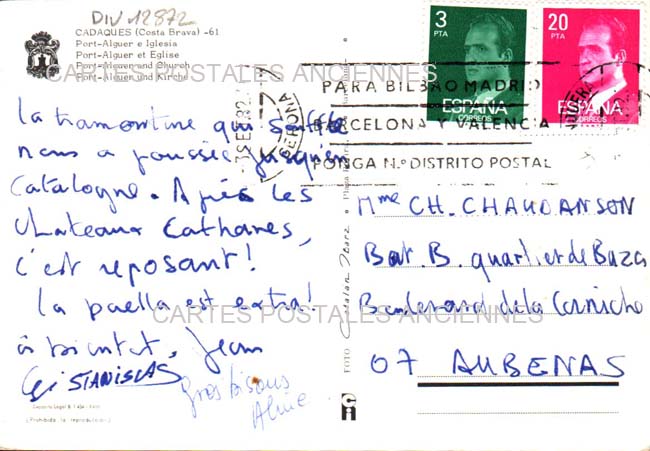 DIV 12872
CADAQUES (Costa Brava) -61
Port-Alguer e Iglesia
Port-Alguer et Eglise
Port-Alguer und Kirche
CARTES POSTALES ANCIENNES
la tramontane qui souffle
nous a poussés jusqu'en
Catalogne. Après les
châteaux Cathares,
c'est reposant!
la paella est extra!
à bientôt, Jean
STANISLAS
gros bisous
Aline
(Prohibida la reproducción)
FOTO
3
PTA
ESPAÑA
CORREOS
20
PTA
ESPAÑA
CORREOS
GERONA
PARA BILBAO MADRID
BARCELONA Y VALENCIA
PONGA N.º DISTRITO POSTAL
Mme CH. CHAUDANSON
Bat. B. quartier de Baza
Boulevard de la Corniche
07 AUBENAS
CARTES POSTALES ANCIENNES